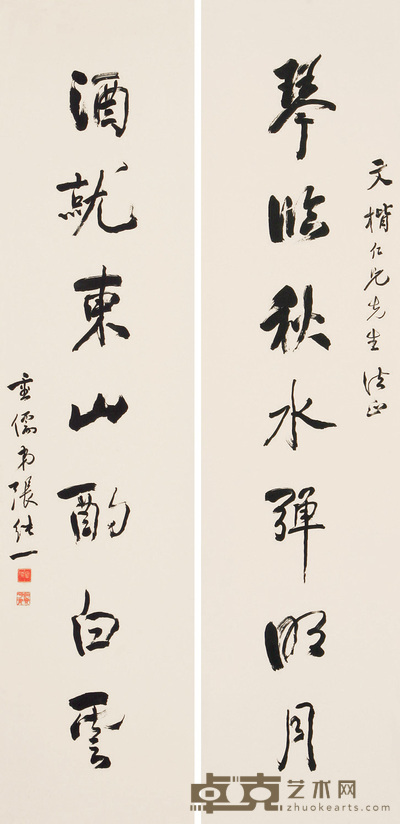 文楷仁兄先生法正
琴临秋水弹明月
酒就東山酌白雲
重儒弟張純一
卓克艺术网
zhuokearts.com